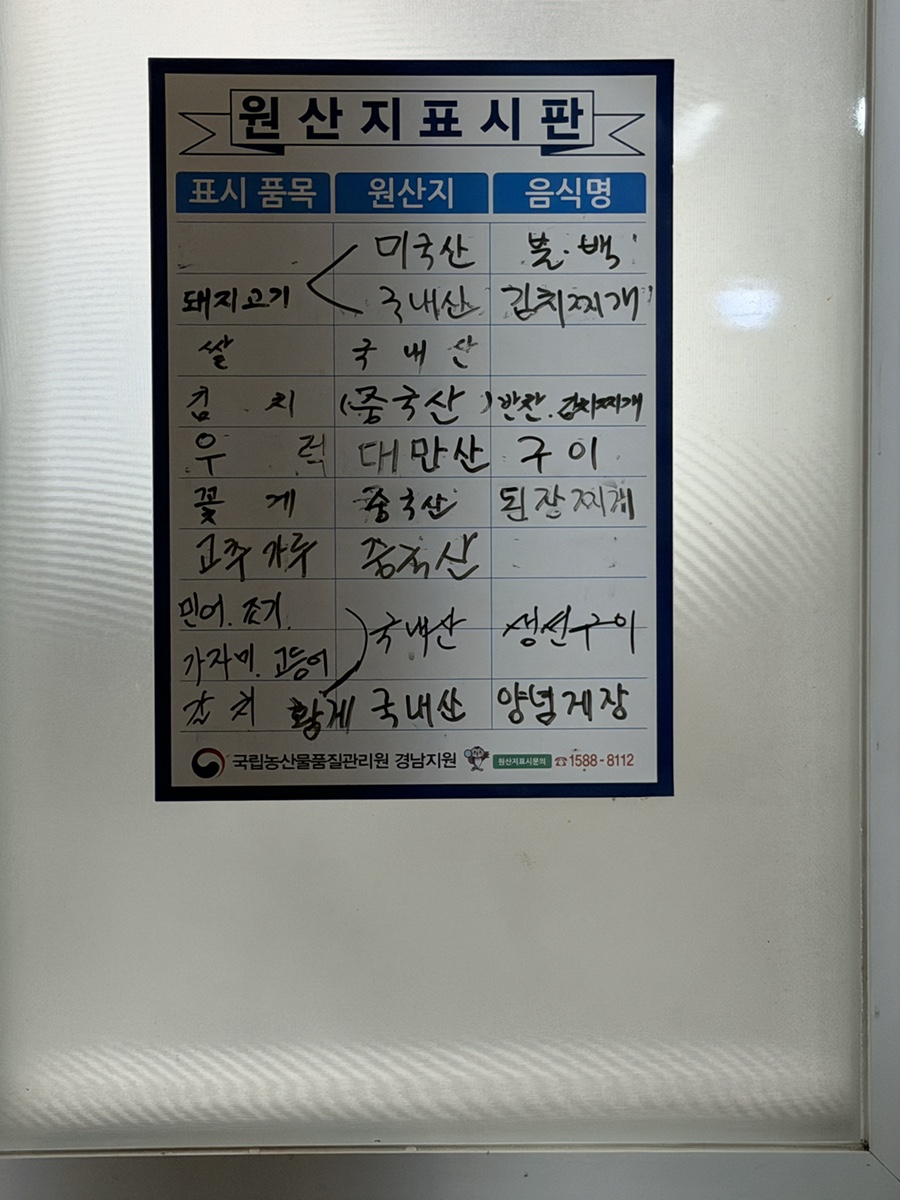 원산지표시판
표시 품목 원산지 음식명
미국산 불.백
돼지고기 국내산 김치찌개
쌀 국내산
김치 (중국산) 반찬.김치찌개
우럭 대만산 구이
꽃게 중국산 된장찌개
고추가루 중국산
민어.조기.
국내산 생선구이
가자미.고등어
갈치 황게 국내산 양념게장
국립농산물품질관리원 경남지원 원산지표시문의 ☎1588-8112